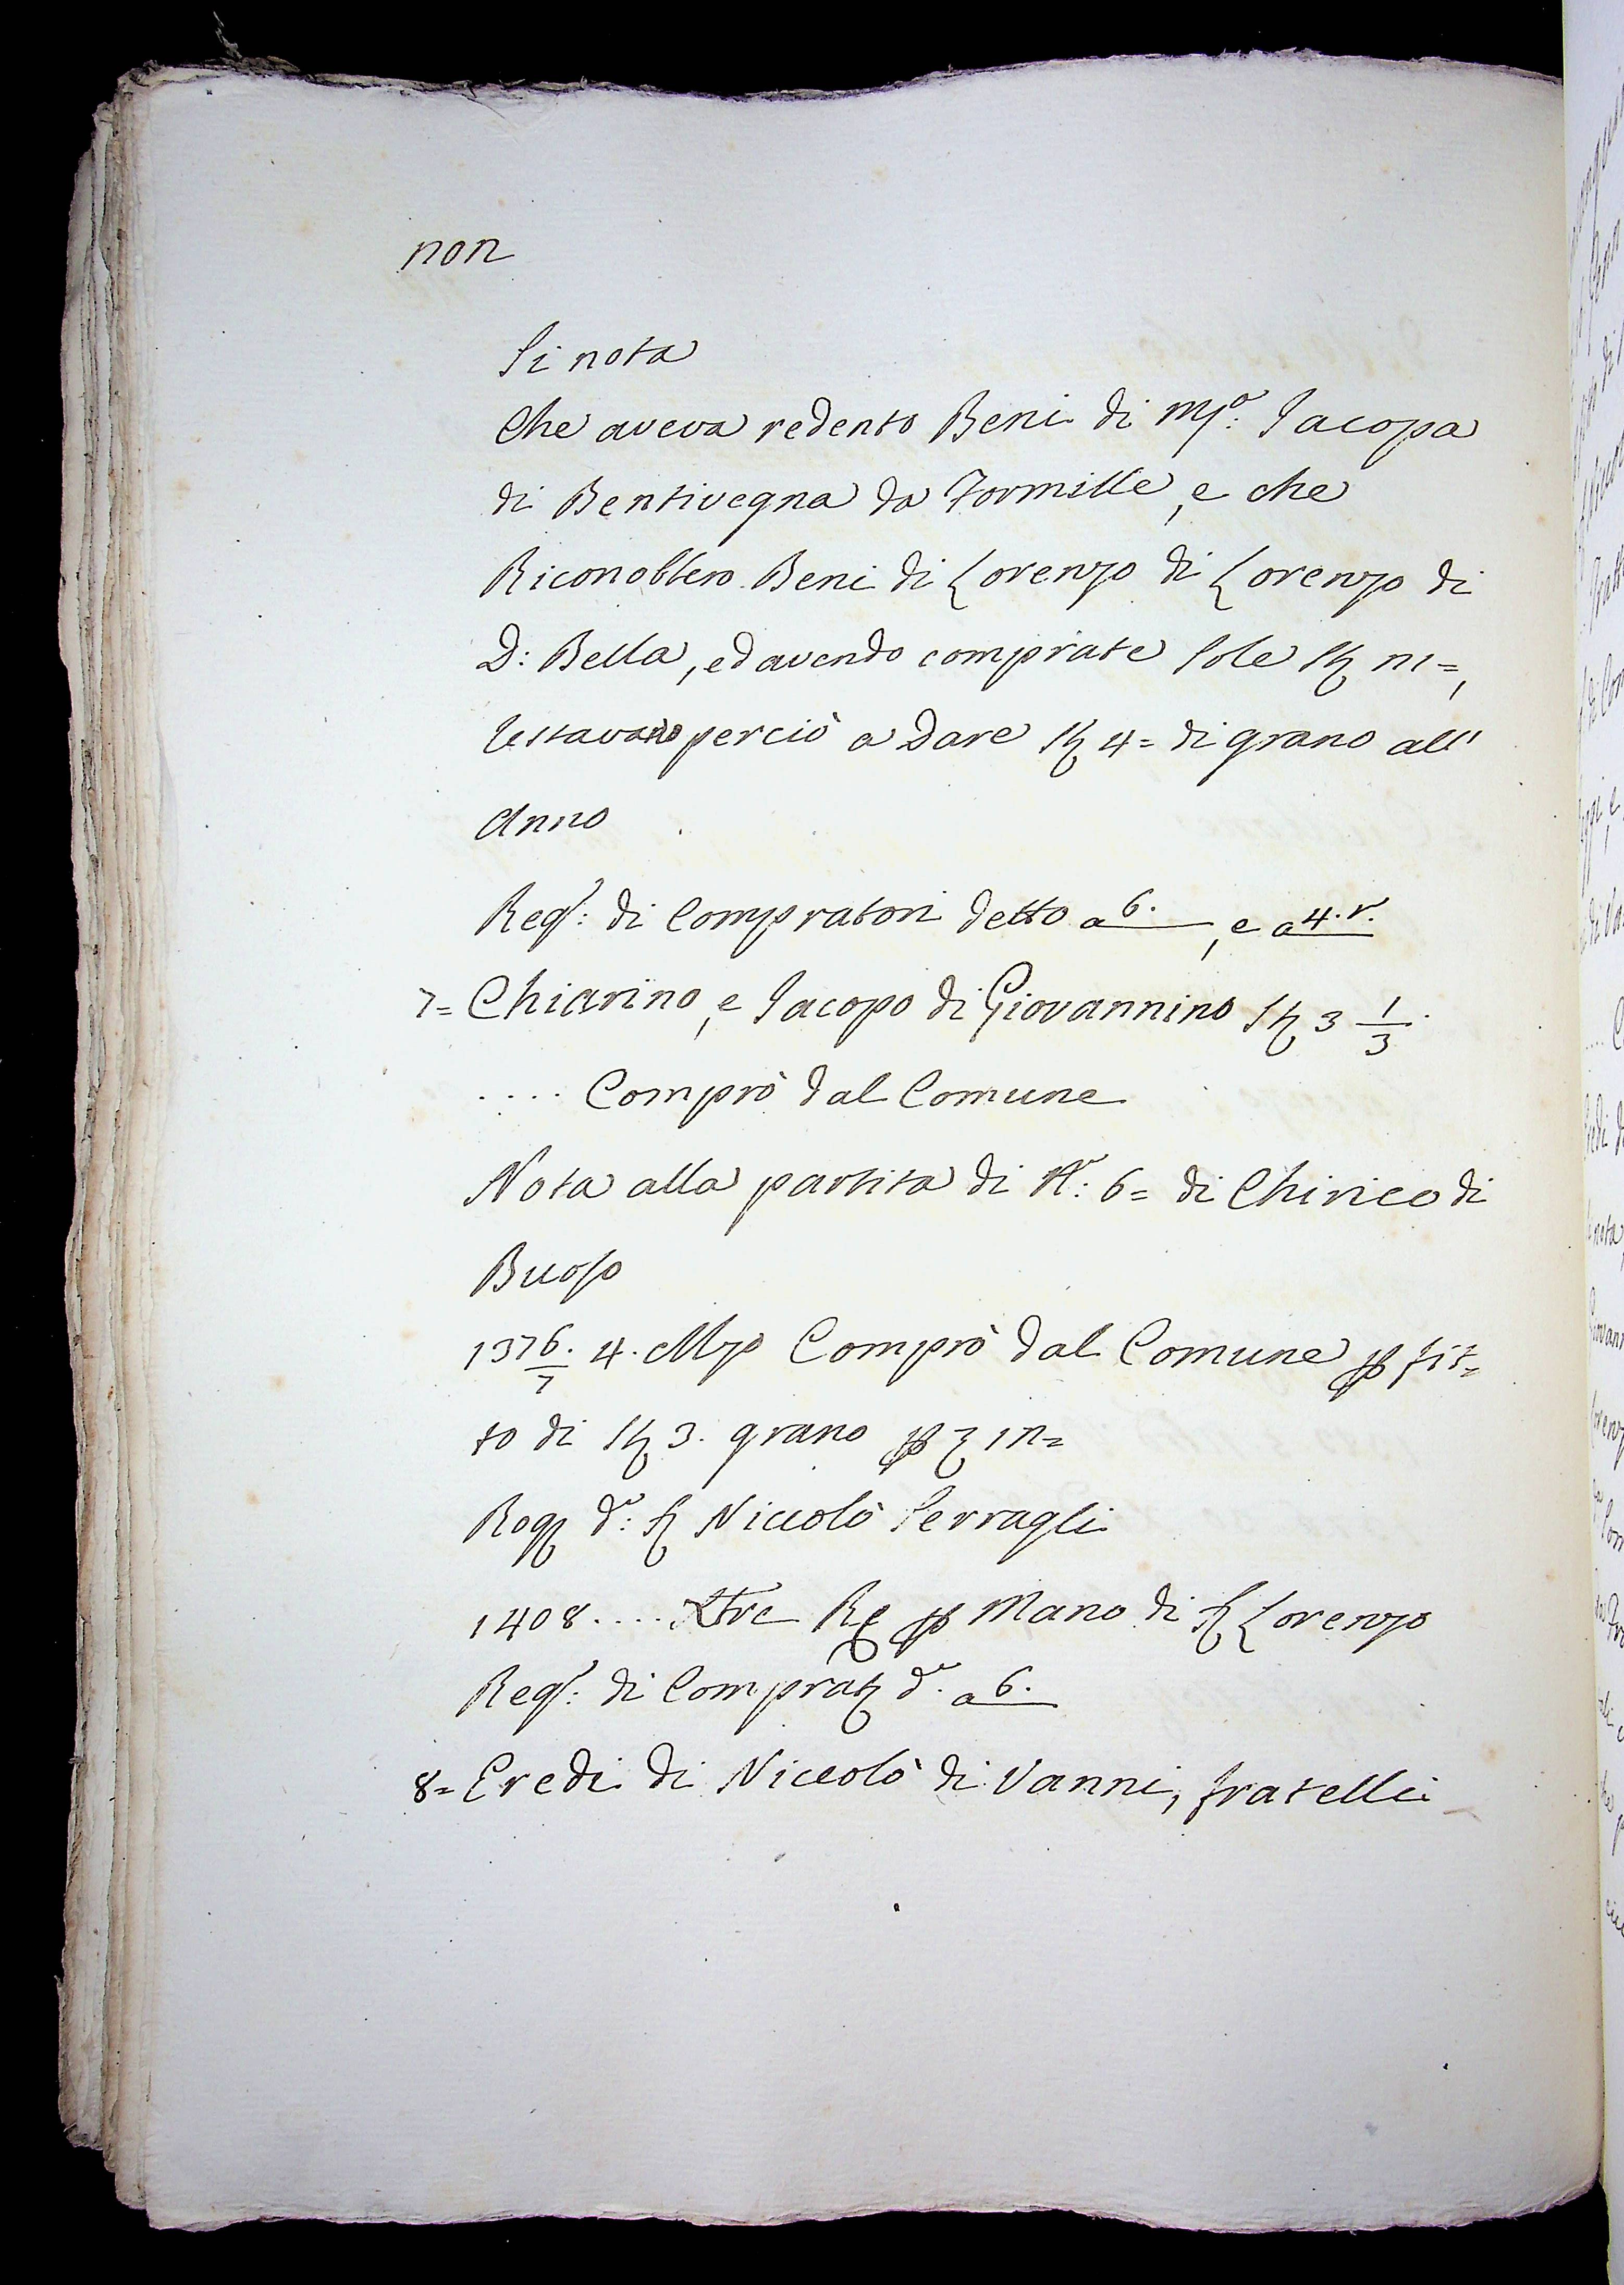 non
Si nota
Che aveva redento Beni di Mª: Jacopa
di Bentivegna da Formille, e che
Riconobbero Beni di Lorenzo di Lorenzo di
D: Bella, ed avendo comprate sole st
Restavano perciò a Dare st 4= di grano all'
Anno
Regº: di Compratori detto a 6. , e a 4. r.
7= Chiarino, e Jacopo di Giovannino st 3 1/3
.... Comprò dal Comune
Nota alla partita di Nº: 6= di Chirico di
Buoso
1376./7 4. Mzo Comprò dal Comune p fit=
to di st 3. grano p
Rog dº: S Niccolò Serragli
1408.... Xbre R p Mano di S Lorenzo
Regº: di Comprat dº. a 6.
8= Eredi di Niccolò di Vanni, fratelli